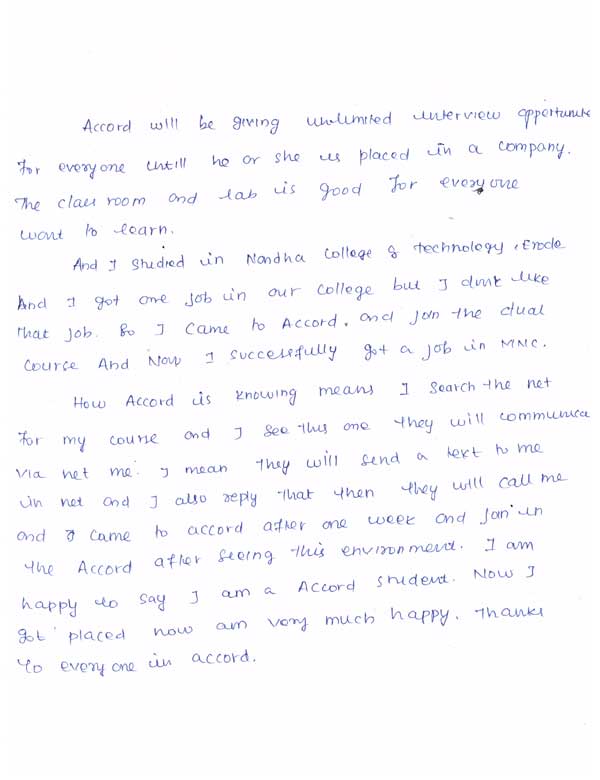 Accord will be giving unlimited interview opportunite
for everyone untill he or she is placed in a company.
The class room and lab is good for everyone
want to learn.
And I studied in Nandha College of technology, Erode
And I got one job in our college but I dont like
that job. So I came to Accord. and join the dual
course And Now I successfully got a job in MNC.
How Accord is knowing means I search the net
for my course and I see this one they will communica
via net me. I mean they will send a text to me
in net and I also reply that then they will call me
and I came to accord after one week and join in
the Accord after seeing this environment. I am
happy to say I am a Accord student. Now I
got placed now am very much happy. Thanks
to everyone in accord.